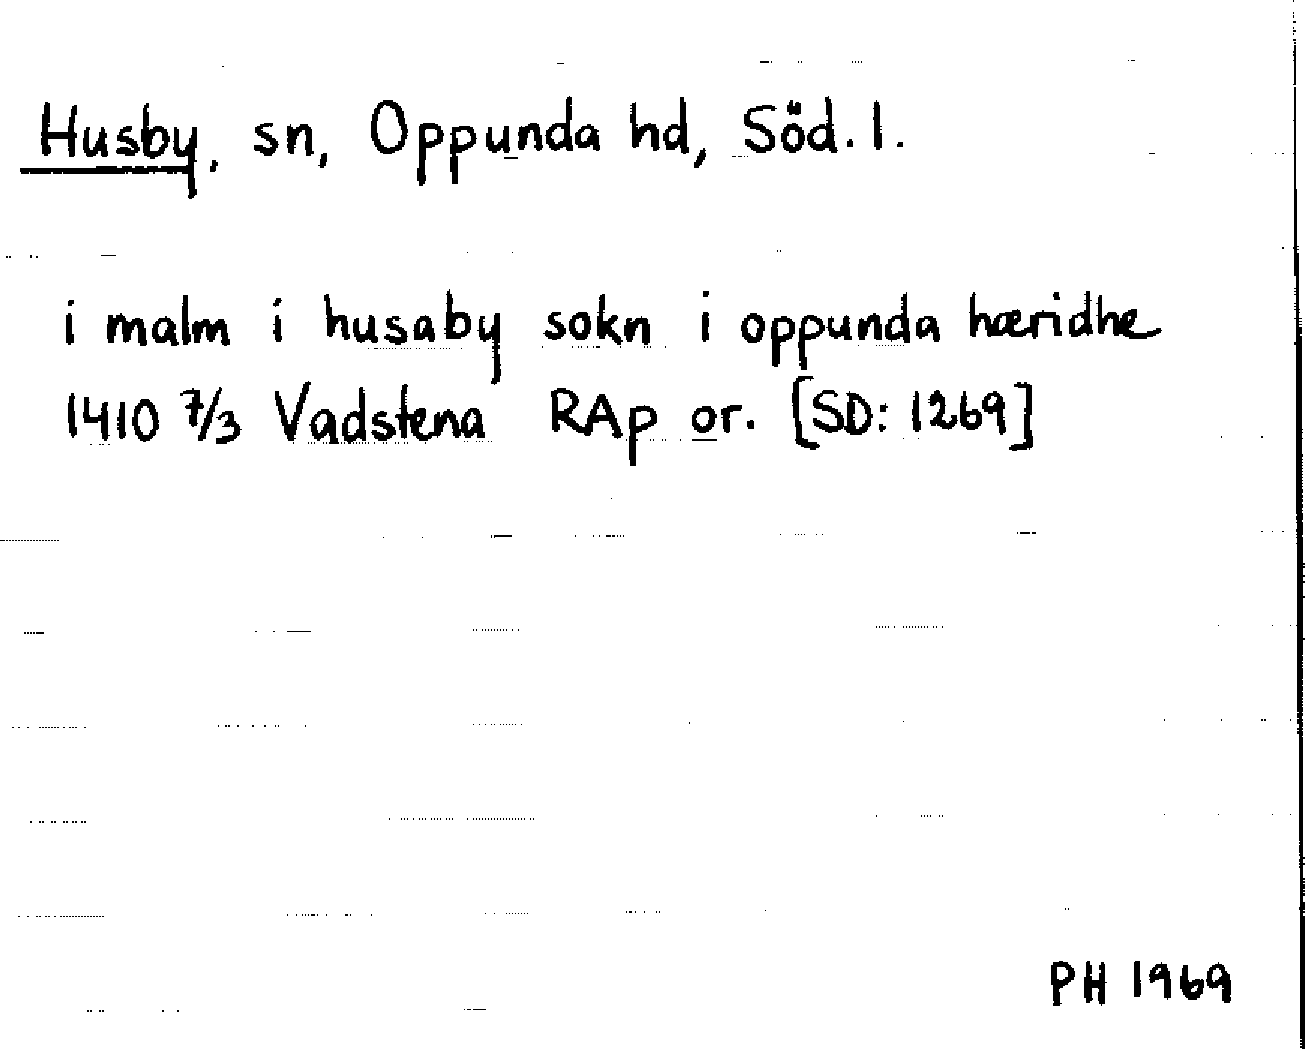 Husby, sn, Oppunda hd, Söd. l.
i malm i husaby sokn i oppunda hæridhe
1410 7/3 Vadstena RAp or. [SD: 1269]
PH 1969